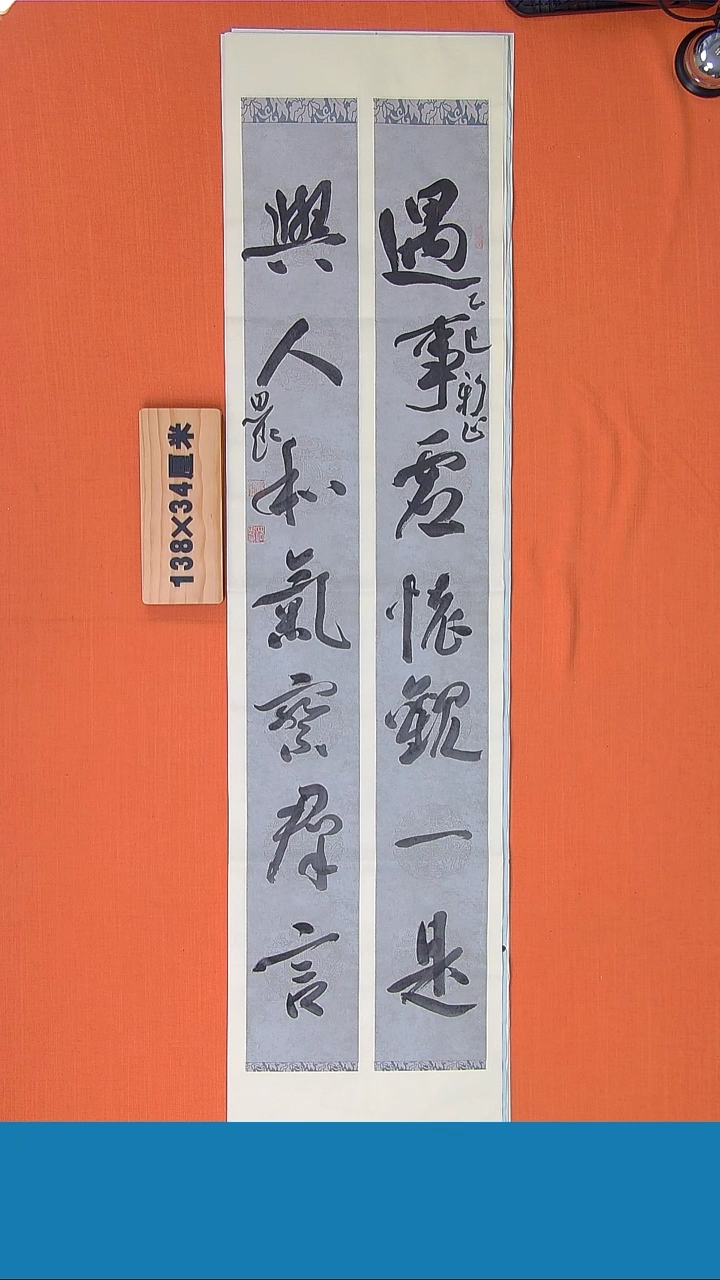 遇事虛懷觀一是
乙巳新正
與人和氣察群言
138×34厘米